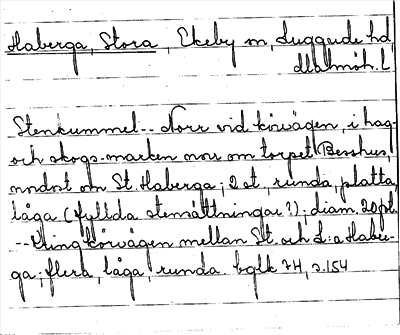 Haberga, Stora, Ekeby sn, Luggude hd,
Malmöh. l.
Stenkummel. -- Norr vid körvägen, i hag-
och skogs-marken norr om torpet Besshus,
nordost om St. Haberga; 2 st, runda, platta,
låga (fyllda stensättningar?); diam. 20 fot.
-- Kring körvägen mellan St. och L:a Haber-
ga; flera, låga, runda. bglk 74, s.154